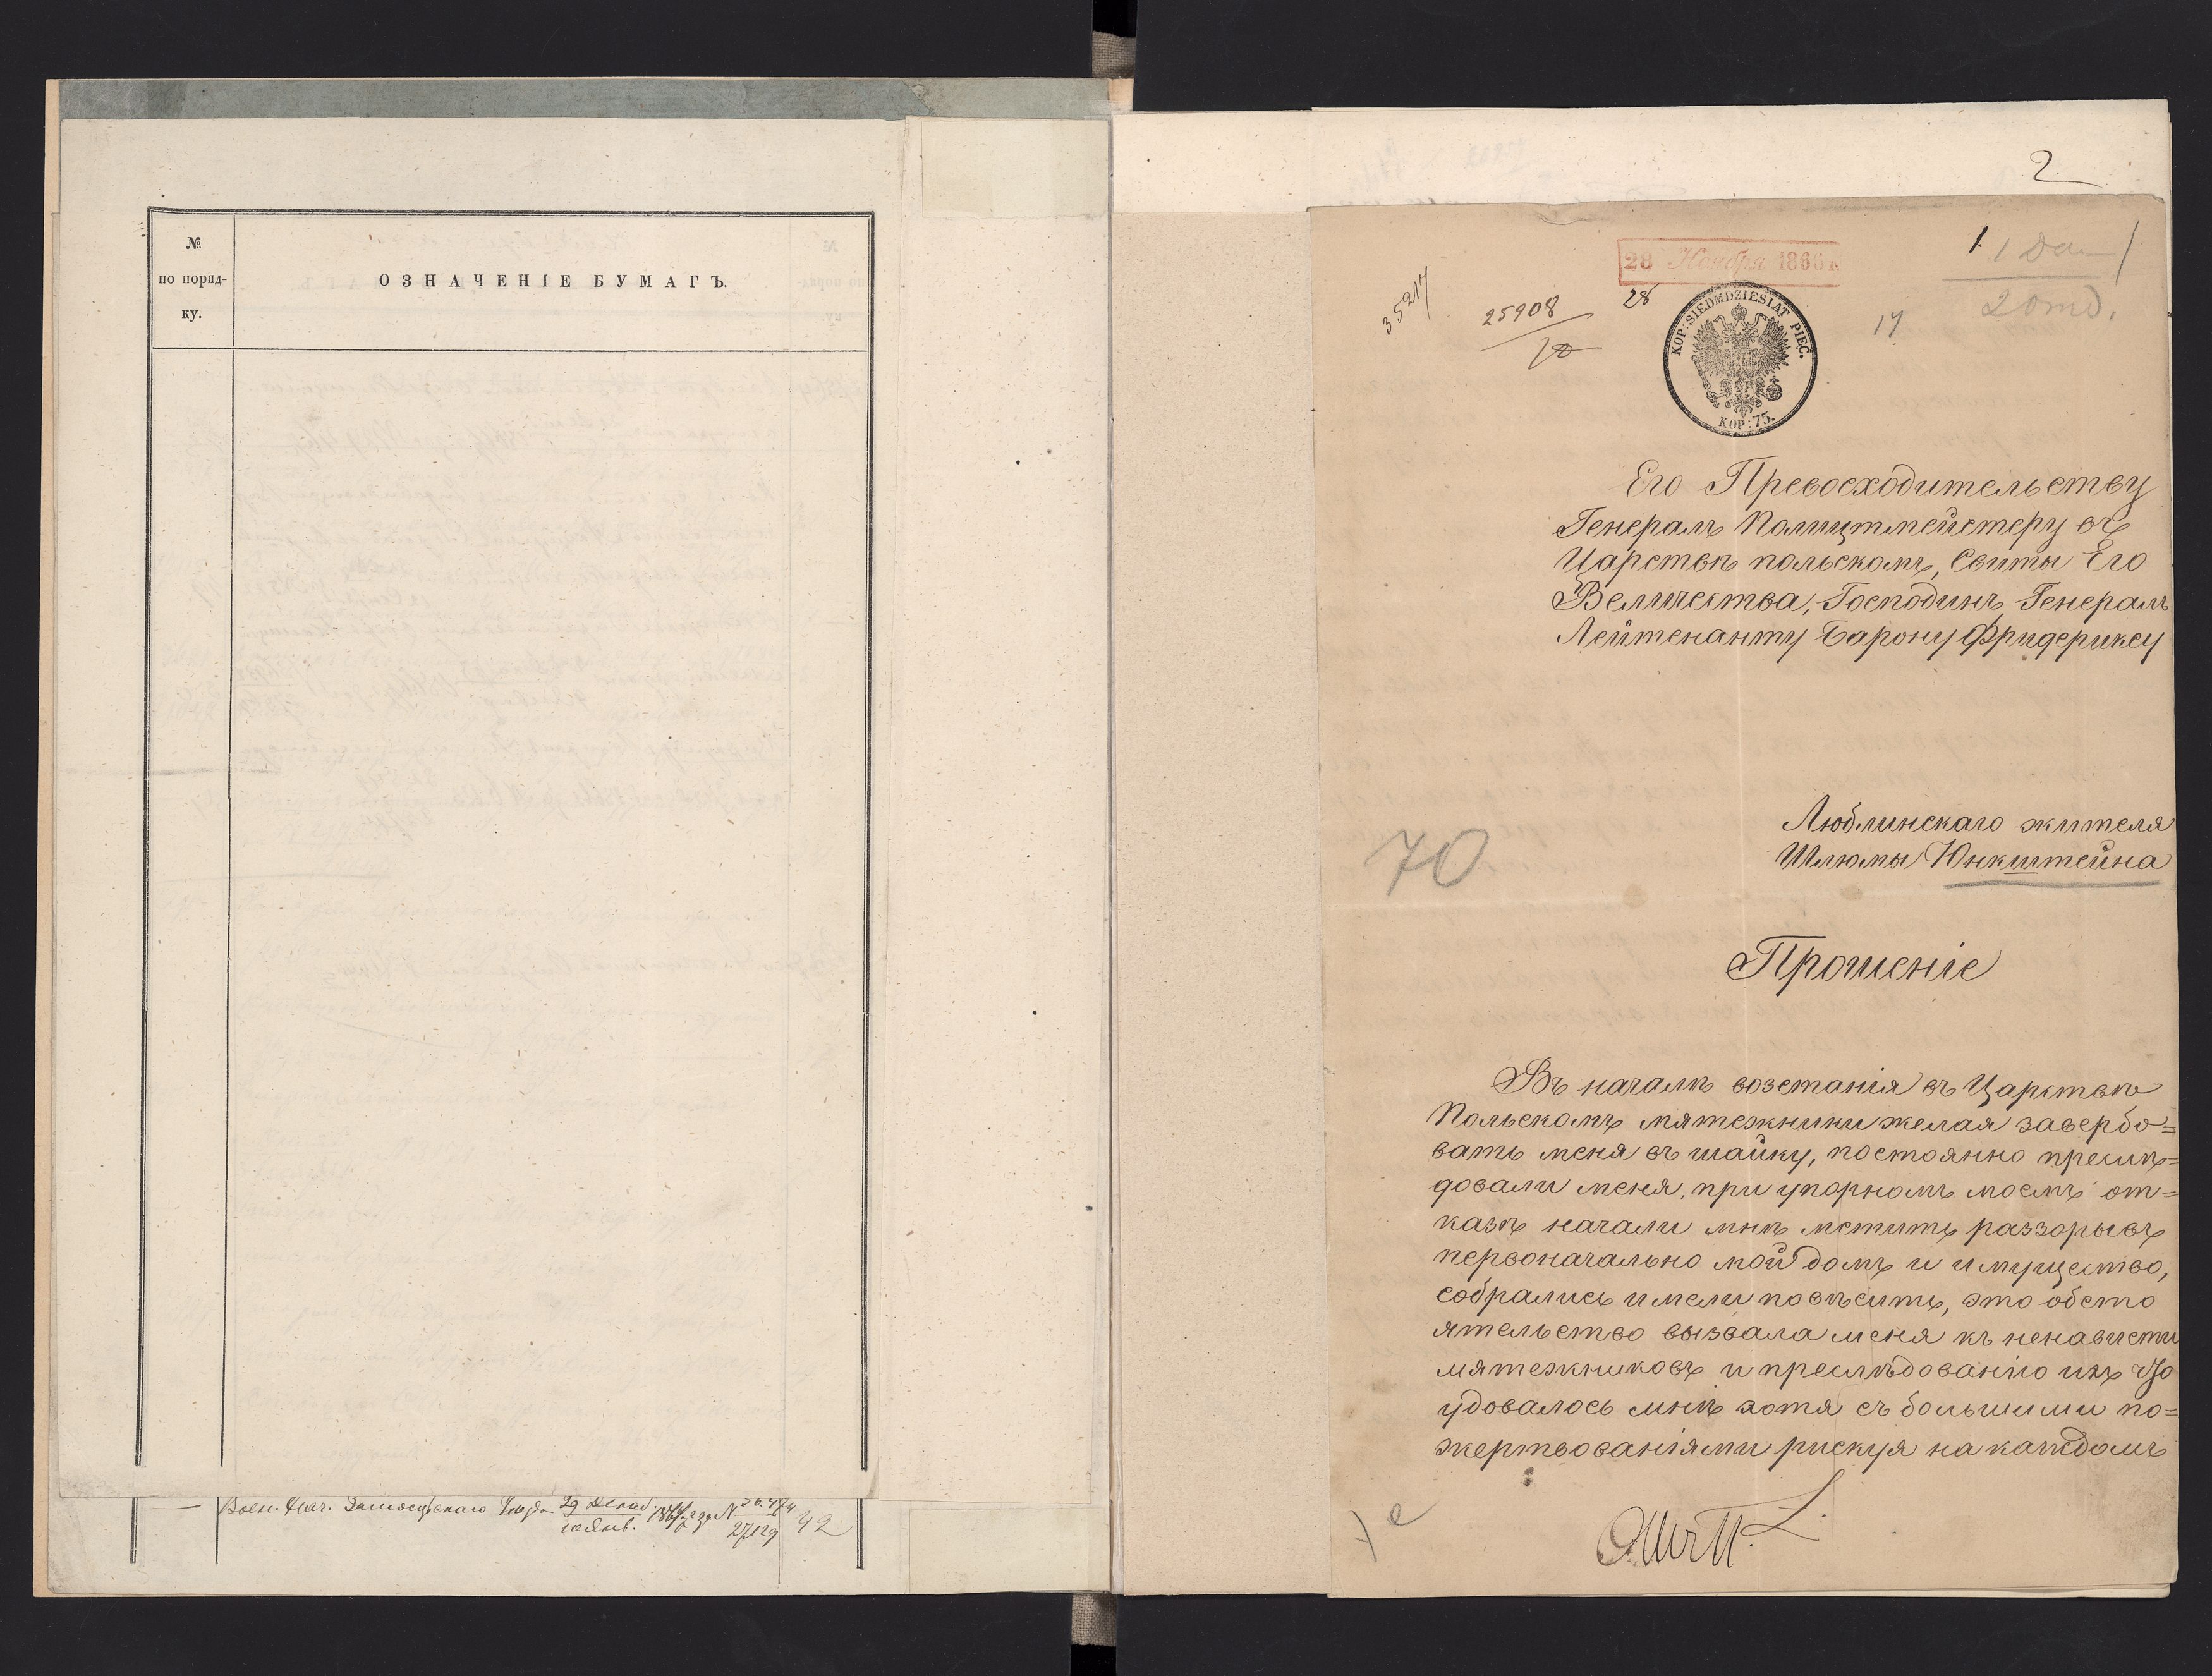 №
по поряд-
ку.
ОЗНАЧЕНІЕ БУМАГЪ.
Воен. Нач. Замосцьскаго Уезда 29 Декаб. 186 за №
10 Янв. 27129 42
2
28 Ноября 1866 г.
1 1 Дѣл
2 отд.
35217
25908
10
28
17
KOP: SIEDMDZIESIĄT PIĘĆ.
KOP: 75.
Его Превосходительству
Генералъ Полицтмейстеру въ
Царствѣ польскомъ, Свиты Его
Величества, Господинъ Генералъ
Лейтенанту Барону Фридериксу
Люблинскаго жителя
Шлюмы Юнкштейна
70
Прошеніе
Въ началѣ возстанія въ Царствѣ
Польскомъ мятежники желая завербо=
вать меня въ шайку, постоянно преслѣ=
довали меня, при упорномъ моемъ от=
казѣ начали мнѣ мстить раззорывъ
первоначально мой домъ и имущество,
собрались и мели повѣсить, это обсто
ятельство вызвала меня къ ненависти
мятежниковъ и преслѣдованію ихъ Что
удовалось мнѣ хотя съ большими по=
жертвованіями рискуя на каждомъ